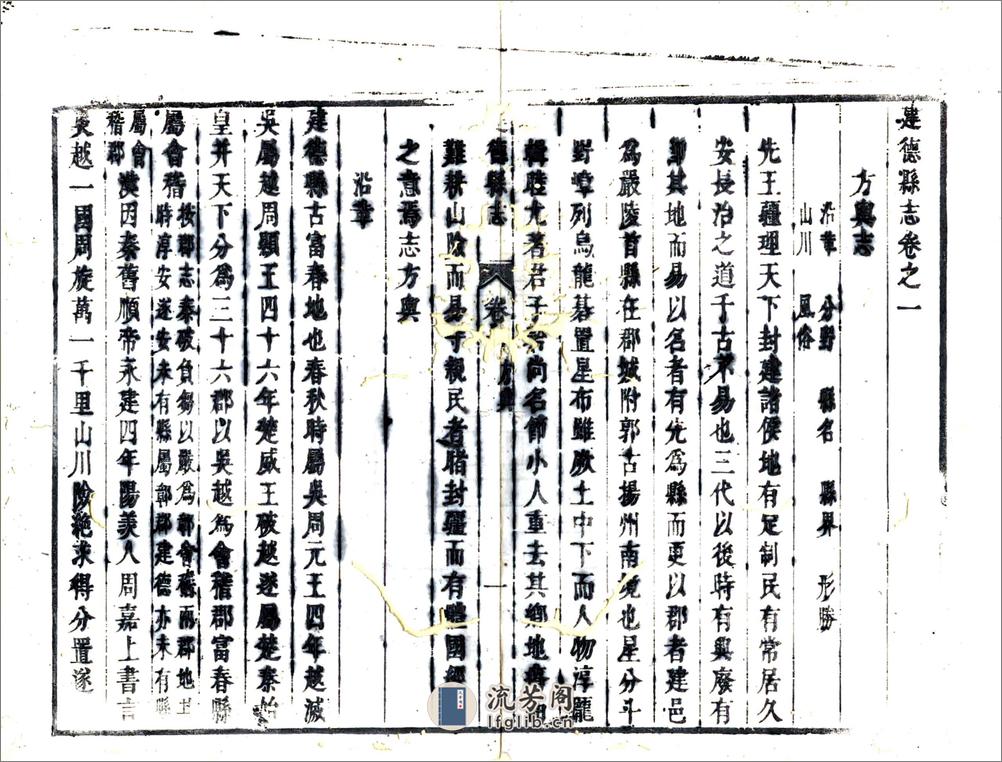 建德縣志卷之一
方輿志
沿革 分野 縣名 縣界 形勝
山川 風俗
先王疆理天下封建諸侯地有定制民有常居久
安長治之道千古不易也三代以後時有興廢有
卽其地而易以名者有先為縣而更以郡者建邑
為嚴陵首縣在郡城附郭古揚州南境也星分斗
野嶂列烏龍碁置星布雖厥土中下而人物淳龎
輯睦尤著君子尚名節小人重去其鄉地
德縣志 卷 方輿 一
難耕山險而易于親民者睹封疆而有體國經
之意焉志方輿
沿革
建德縣古富春地也春秋時屬吳周元王四年越滅
吳屬越周顯王四十六年楚威王破越遂屬楚秦始
皇并天下分為三十六郡以吳越為會稽郡富春縣
屬會稽
按郡志秦破負芻以嚴為鄣會稽兩郡地
時淳安遂安未有縣屬鄣郡建德亦未有縣
屬會
稽郡
漢因秦舊順帝永建四年陽羨人周嘉上書言
吳越一國周旋萬一千里山川險絕求得分置遂
流芳阁
lfglib.cn